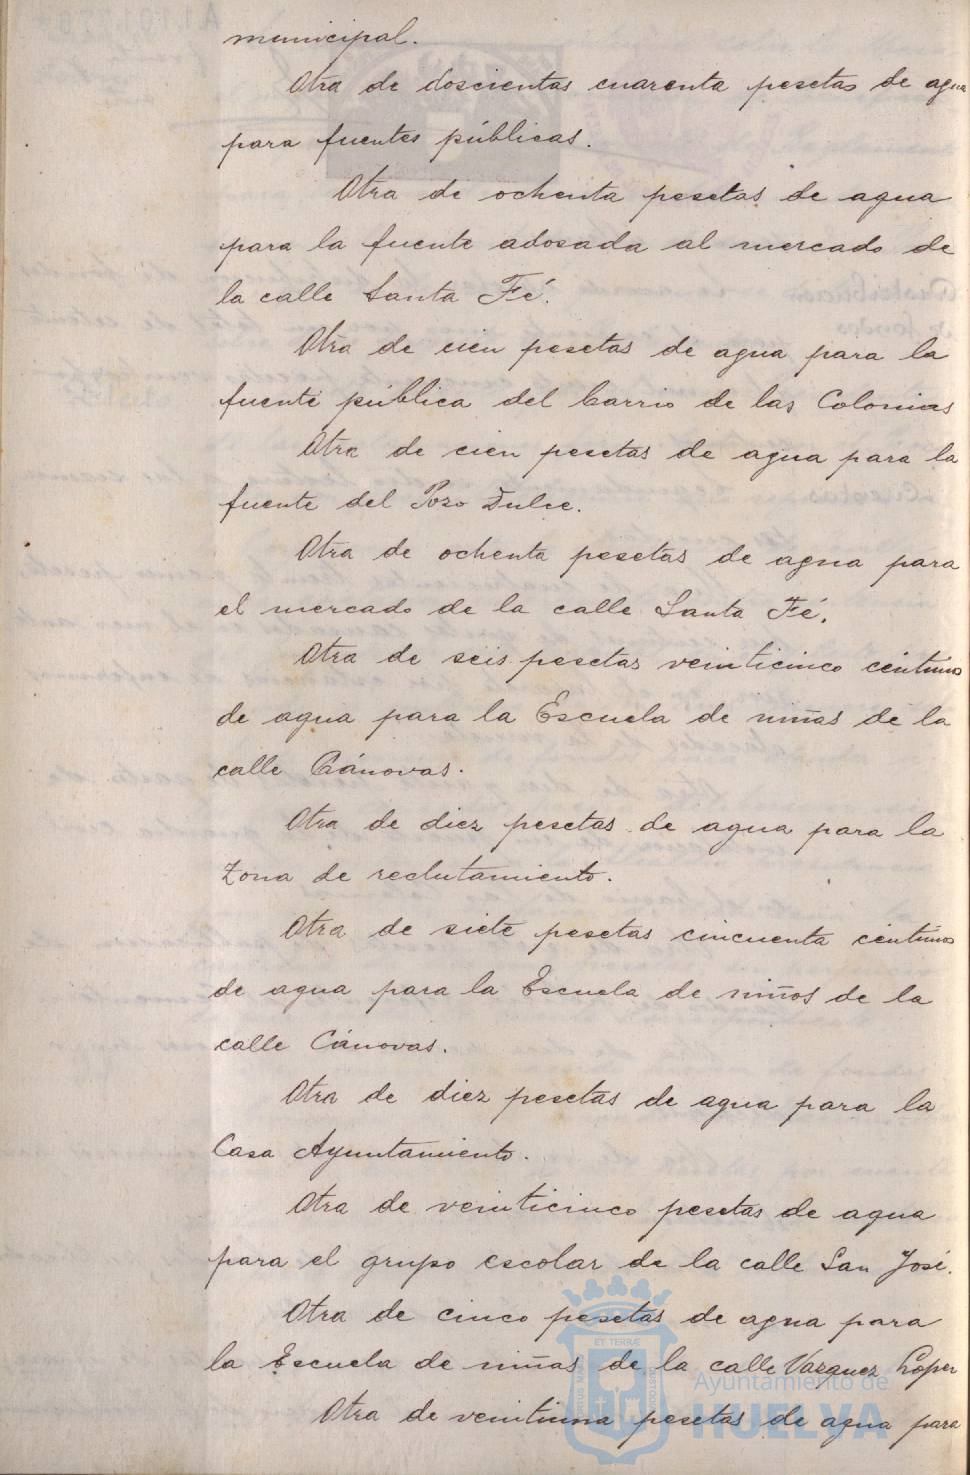 municipal.
Otra de doscientas cuarenta pesetas de agua
para fuentes públicas.
Otra de ochenta pesetas de agua
para la fuente adosada al mercado de
la calle Santa Fé.
Otra de cien pesetas de agua para la
fuente pública del barrio de las Colonias
Otra de cien pesetas de agua para la
fuente del Pozo Dulce.
Otra de ochenta pesetas de agua para
el mercado de la calle Santa Fé.
Otra de seis pesetas veinticinco céntimos
de agua para la Escuela de niñas de la
calle Cánovas.
Otra de diez pesetas de agua para la
Zona de reclutamiento.
Otra de siete pesetas cincuenta céntimos
de agua para la Escuela de niños de la
calle Cánovas.
Otra de diez pesetas de agua para la
Casa Ayuntamiento.
Otra de veinticinco pesetas de agua
para el grupo escolar de la calle San José.
Otra de cinco pesetas de agua para
la Escuela de niñas de la calle Vazquez Lopez
Otra de veintiuna pesetas de agua para
ET TERRÆ
Ayuntamiento de
HUELVA